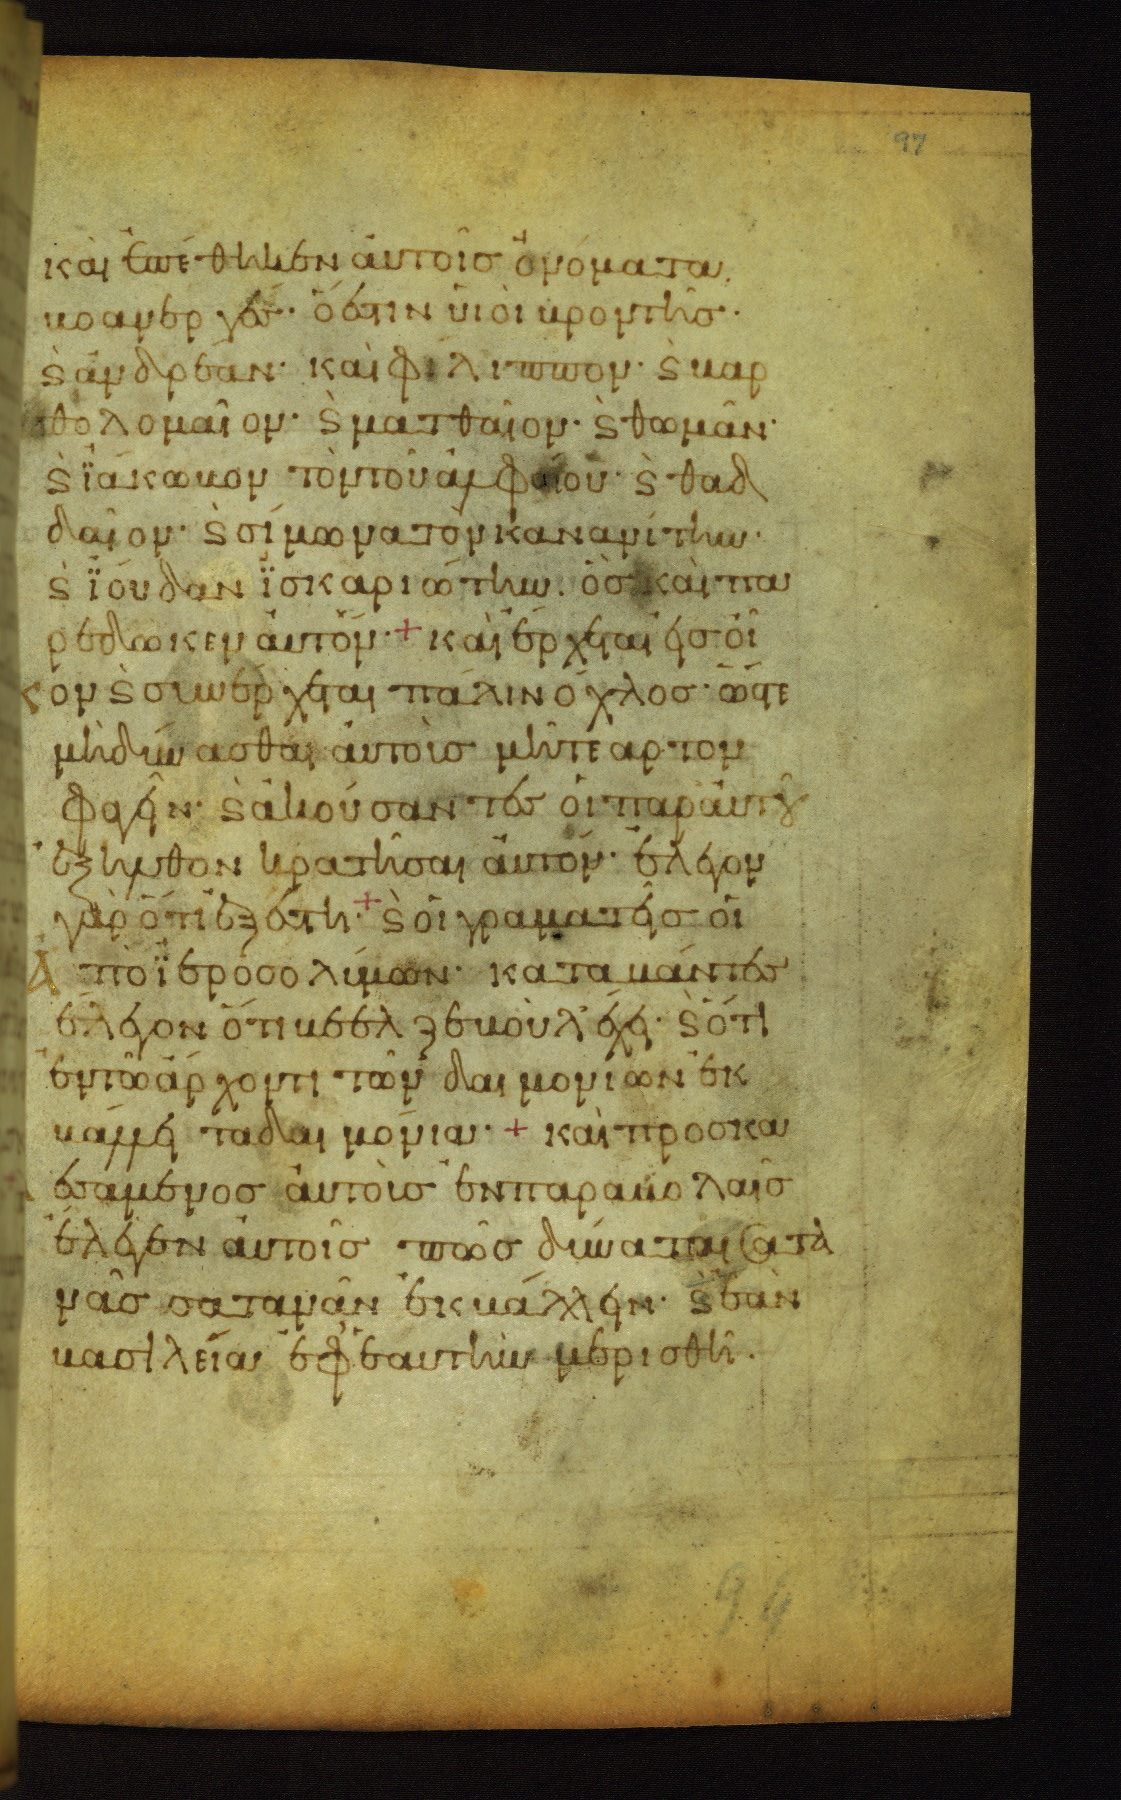 97
καὶ ἐπέθηκεν αὐτοῖς ὀνόματα
βοανεργές· ὅ ἐστιν υἱοὶ βροντῆς·
ϗ ἀνδρέαν· καὶ φίλιππον· ϗ βαρ
θολομαῖον· ϗ ματθαῖον· ϗ θωμᾶν·
ϗ ϊάκωβον τὸν τοῦ ἀλφαίου· ϗ θαδ
δαῖον· ϗ σίμωνα τὸν κανανίτην·
ϗ ϊούδαν ϊσκαριώτην· ὃς καὶ πα
ρέδωκεν αὐτόν· + καὶ ἔρχεται εἰς οἶ
κον ϗ συνέρχεται πάλιν ὄχλος· ὥστε
μὴ δύνασθαι αὐτοὺς μήτε αρτον
φαγεῖν· ϗ ἀκούσαντες οἱ παρ αὐτοῦ
ἐξῆλθον κρατῆσαι αὐτόν· ἔλεγον
γὰρ ὅτι ἐξέστη· + ϗ οἱ γραματεῖς οἱ
ἀπὸ ϊεροσολύμων· καταβάντες
ἔλεγον ὅτι βεελζεβοὺλ ἔχει· ϗ ὅτι
ἐν τῶ ἄρχοντι τῶν δαιμονίων ἐκ
βάλλει τα δαιμόνια· + καὶ προσκα
λεσάμενος αὐτοὺς ἐν παραβολαῖς
ἔλεγεν αὐτοῖς πῶς δύναται σατα
νᾶς σατανᾶν ἐκβάλλειν· ϗ ἐὰν
βασιλεία ἐφ ἑαυτὴν μερισθῆ·
94